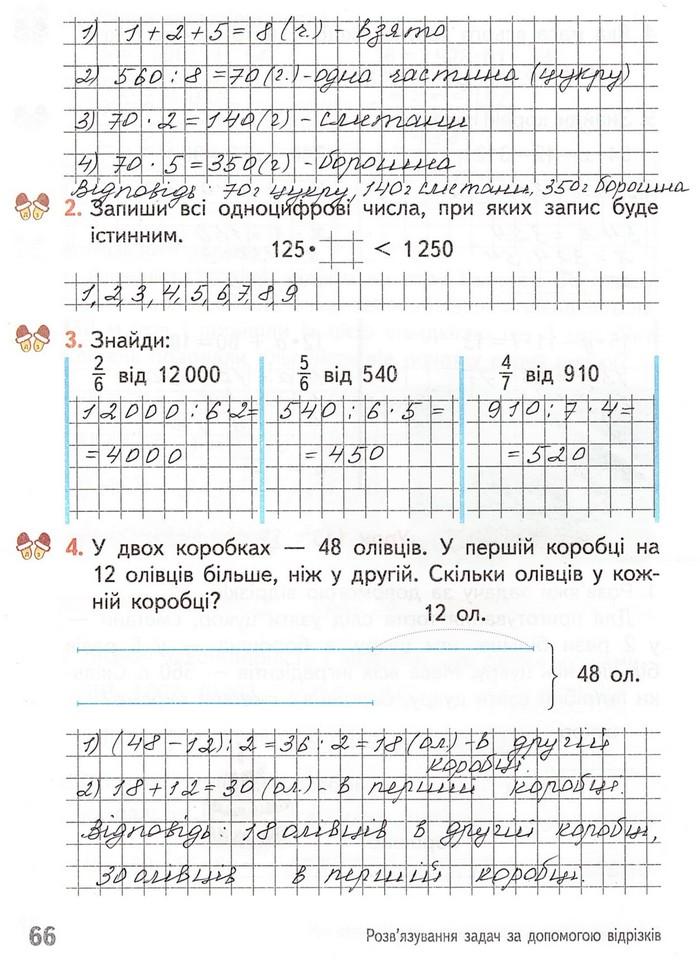 1) 1 + 2 + 5 = 8 (ч.) - взято
2) 560 : 8 = 70 (г.) - одна частина (цукру)
3) 70 · 2 = 140 (г) - сметани
4) 70 · 5 = 350 (г) - борошна
Відповідь : 70 г цукру, 140 г сметани, 350 г борошна
2. Запиши всі одноцифрові числа, при яких запис буде
істинним.
125 • < 1250
1, 2, 3, 4, 5, 6, 7, 8, 9
3. Знайди:
2/6 від 12 000 5/6 від 540 4/7 від 910
12000 : 6 · 2 = 540 : 6 · 5 = 910 : 7 · 4 =
= 4000 = 450 = 520
4. У двох коробках — 48 олівців. У першій коробці на
12 олівців більше, ніж у другій. Скільки олівців у кож-
ній коробці?
12 ол.
48 ол.
1) (48 - 12) : 2 = 36 : 2 = 18 (ол) - в другій
коробці.
2) 18 + 12 = 30 (ол) - в першій коробці.
Відповідь : 18 олівців в другій коробці,
30 олівців в першій коробці.
66 Розв'язування задач за допомогою відрізків